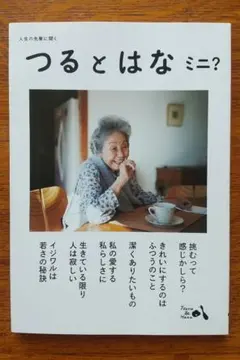 人生の先輩に聞く
つるとはな ミニ?
挑むって
感じかしら?
きれいにするのは
ふつうのこと
潔くありたいもの
私の愛する
私らしさに
生きている限り
人は寂しい
イジワルは
若さの秘訣